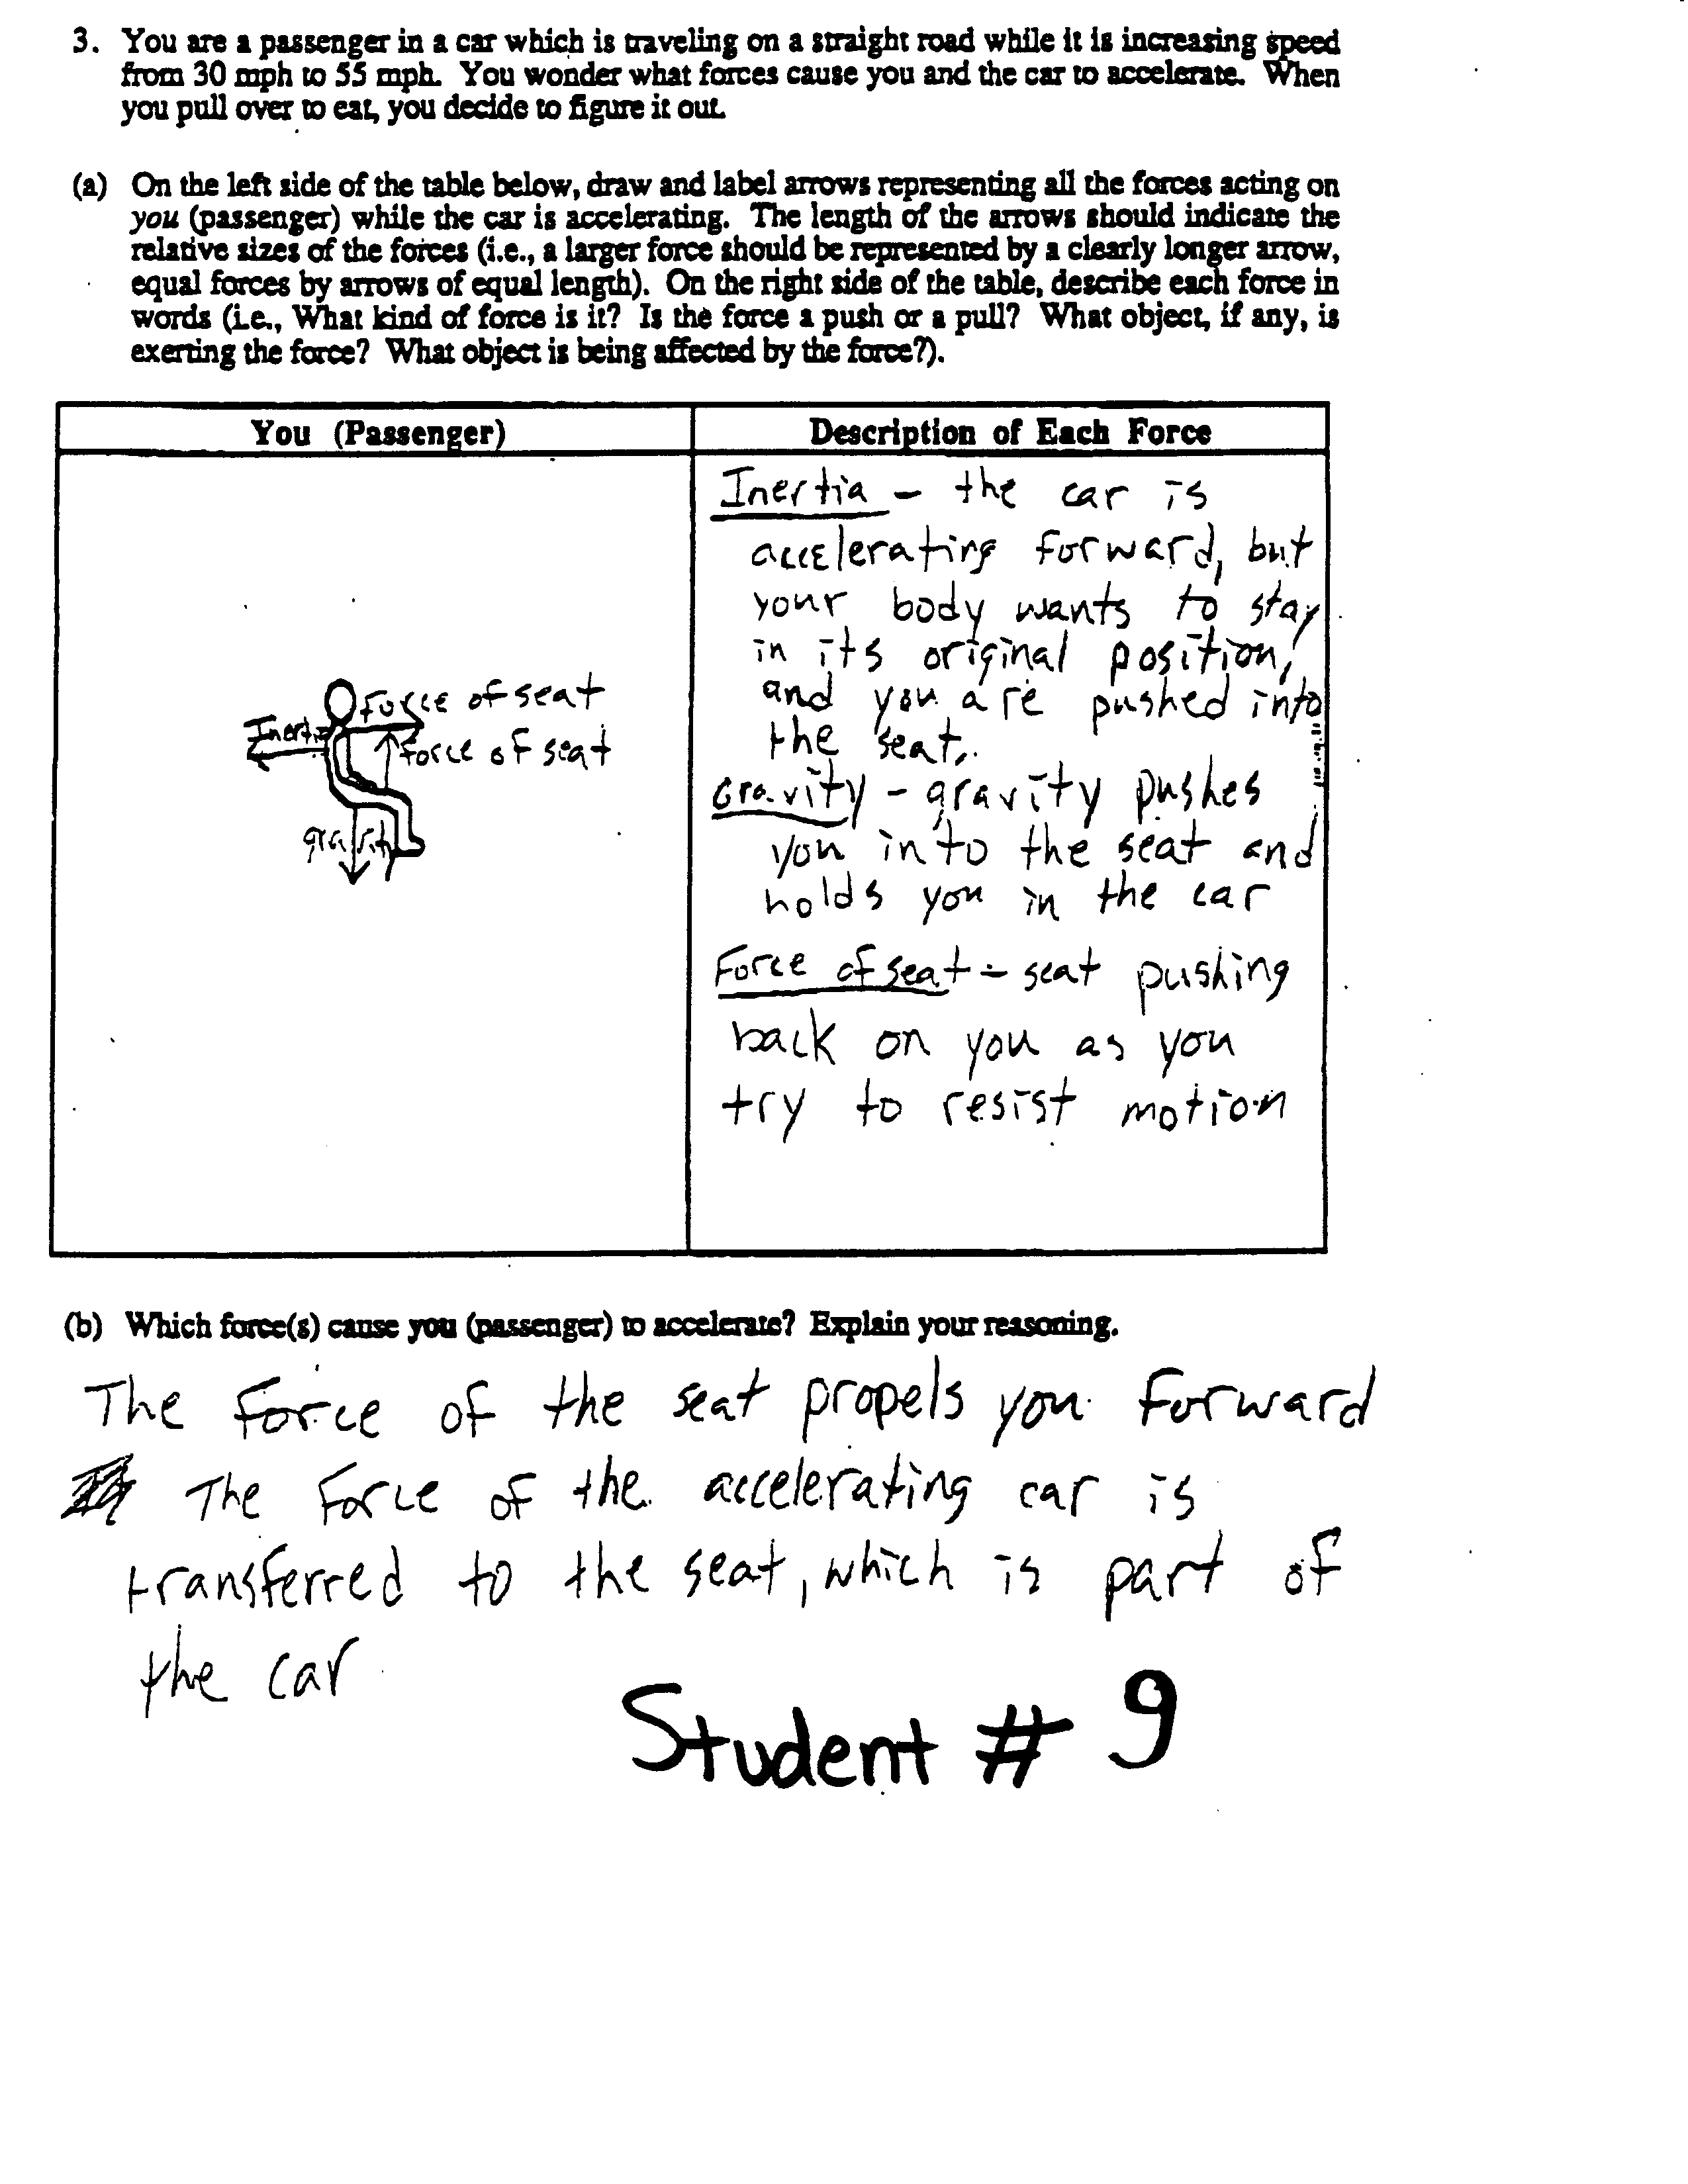 3. You are a passenger in a car which is traveling on a straight road while it is increasing speed
from 30 mph to 55 mph. You wonder what forces cause you and the car to accelerate. When
you pull over to eat, you decide to figure it out.
(a) On the left side of the table below, draw and label arrows representing all the forces acting on
you (passenger) while the car is accelerating. The length of the arrows should indicate the
relative sizes of the forces (i.e., a larger force should be represented by a clearly longer arrow,
equal forces by arrows of equal length). On the right side of the table, describe each force in
words (i.e., What kind of force is it? Is the force a push or a pull? What object, if any, is
exerting the force? What object is being affected by the force?).
You (Passenger)
Force of seat
Inertia
force of seat
gravity
Description of Each Force
Inertia - the car is
accelerating forward, but
your body wants to stay
in its original position,
and you are pushed into
the seat.
Gravity - gravity pushes
you into the seat and
holds you in the car
Force of seat - seat pushing
back on you as you
try to resist motion
(b) Which force(s) cause you (passenger) to accelerate? Explain your reasoning.
The force of the seat propels you forward
The force of the accelerating car is
transferred to the seat, which is part of
the car
Student # 9